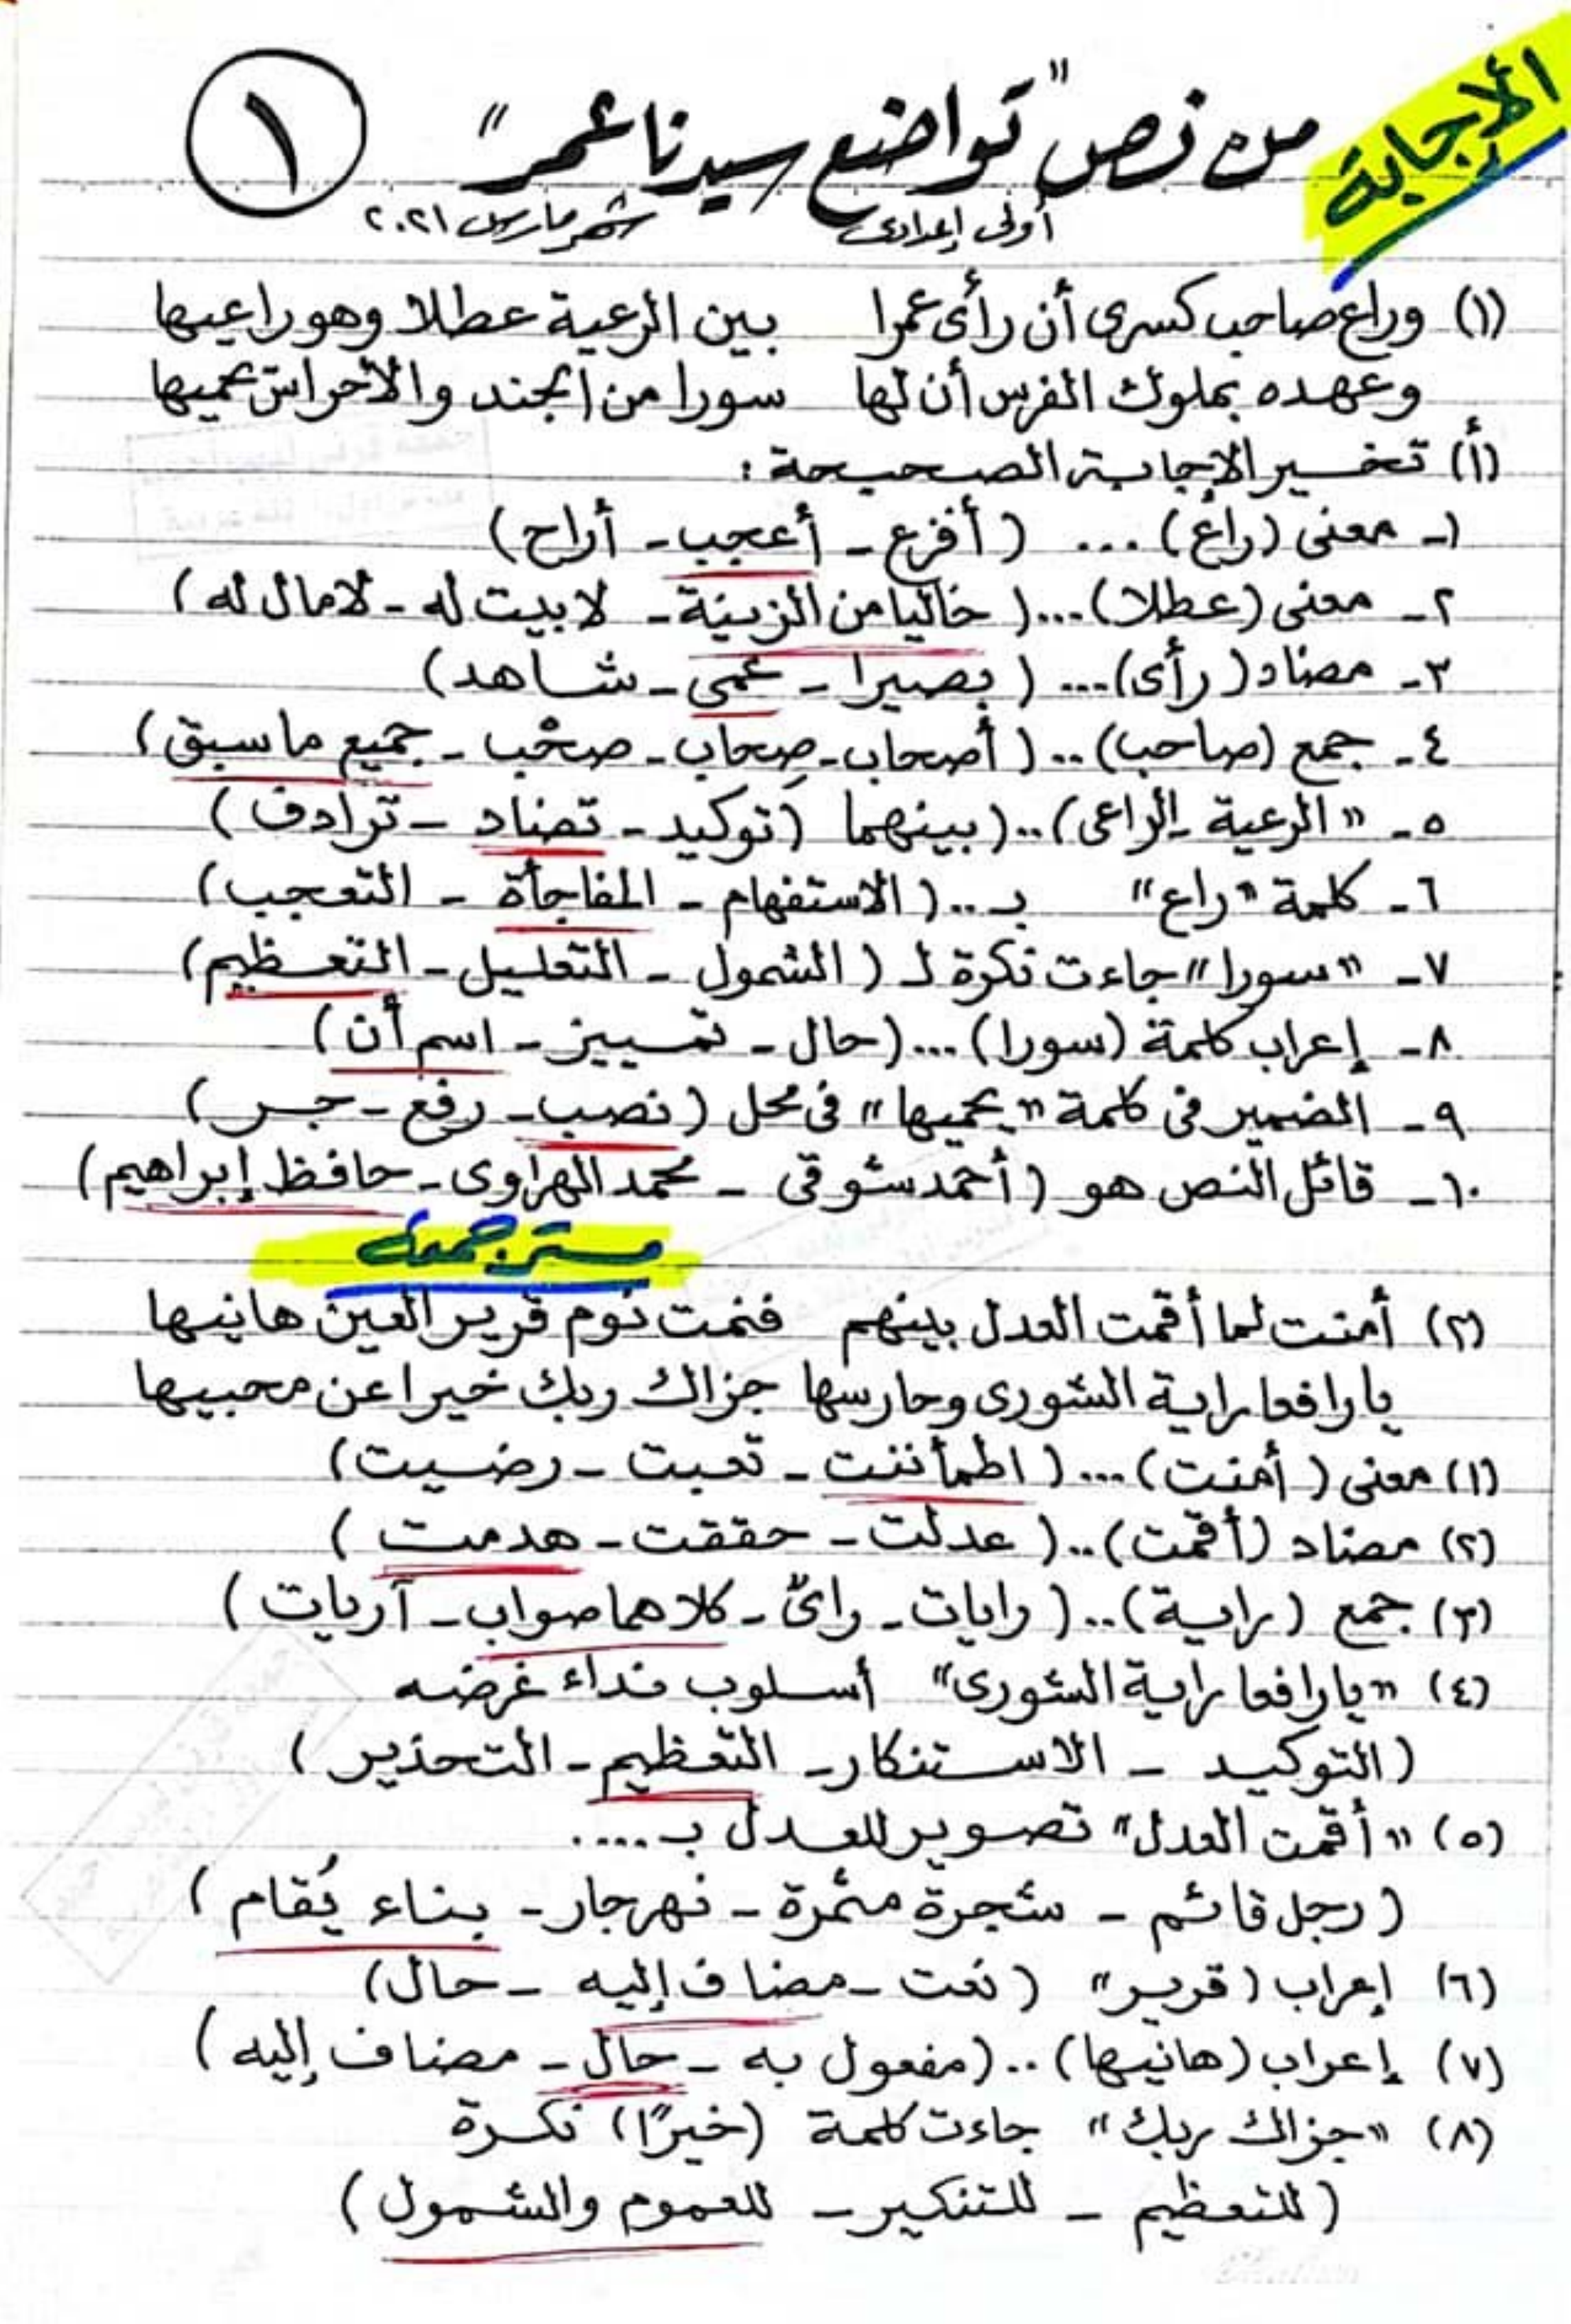 الإجابة
من نص "تواضع سيدنا عمر"
١
أولى إعدادى شهر مارس ٢٠٢١
(١) وراع صاحب كسرى أن رأى عمرا بين الرعية عطلا وهو راعيها
وعهده بملوك الفرس أن لها سورا من الجند والأحراس يحميها
(أ) تخير الإجابة الصحيحة:
١- معنى (راع) ... (أفزع - أعجب - أراح)
٢- معنى (عطلا)...( خاليا من الزينة - لا بيت له - لا مال له)
٣- مضاد (رأى)... (بصيرا - عمى - شاهد)
٤- جمع (صاحب).. (أصحاب - صِحاب - صحْب - جميع ما سبق)
٥- "الرعية - الراعى)..(بينهما (توكيد - تضاد - ترادف)
٦- كلمة "راع" بـ..(الاستفهام - المفاجأة - التعجب)
٧- "سورا" جاءت نكرة لـ (الشمول - التقليل - التعظيم)
٨- إعراب كلمة (سورا)...(حال - تمييز - اسم أن)
٩- الضمير فى كلمة "يحميها" فى محل (نصب - رفع - جر)
١٠- قائل النص هو (أحمد شوقى - محمد الهراوى - حافظ إبراهيم)
مستر جمعه
(٢) أمنت لما أقمت العدل بينهم فنمت نوم قرير العين هانيها
يا رافعا راية الشورى وحارسها جزاك ربك خيرا عن محبيها
(١) معنى (أمنت)...(اطمأننت - تعبت - رضيت)
(٢) مضاد (أقمت)..(عدلت - حققت - هدمت)
(٣) جمع (راية)..(رايات - راىٌ - كلاهما صواب - آريات)
(٤) "يا رافعا راية الشورى" أسلوب نداء غرضه
(التوكيد - الاستنكار - التعظيم - التحذير)
(٥) "أقمت العدل" تصوير للعدل بـ.....
(رجل قائم - شجرة مثمرة - نهر جار - بناء يُقام)
(٦) إعراب (قرير" (نعت - مضاف إليه - حال)
(٧) إعراب (هانيها)..(مفعول به - حال - مضاف إليه)
(٨) "جزاك ربك" جاءت كلمة (خيرًا) نكرة
(للتعظيم - للتنكير - للعموم والشمول)